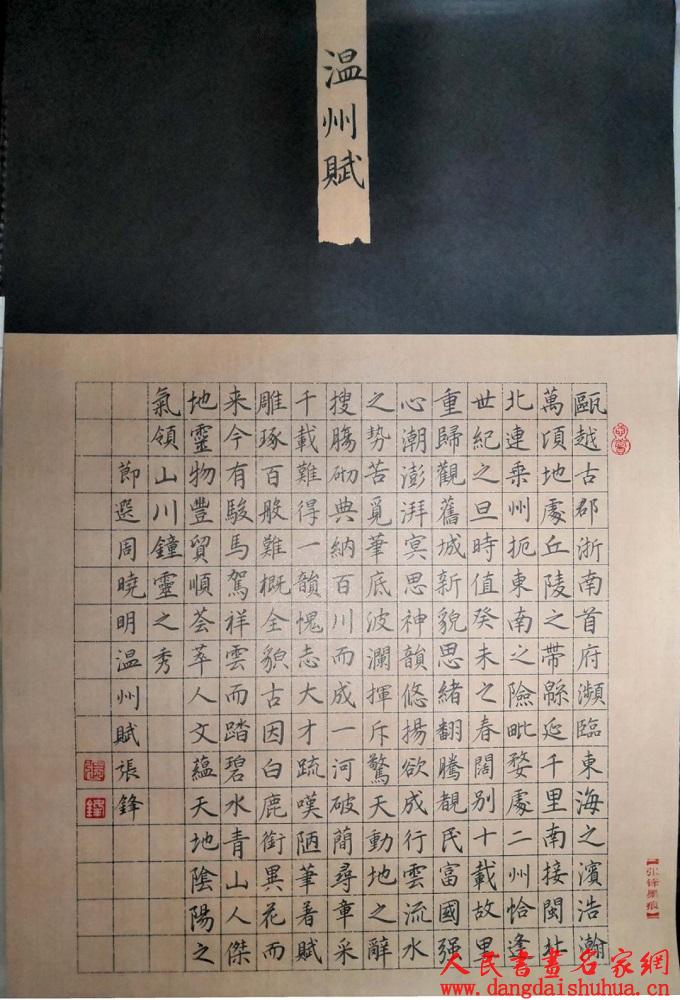 温州賦
甌越古郡浙南首府瀕臨東海之濱浩瀚
萬頃地處丘陵之帶緜延千里南接閩北
北連乘州扼東南之險毗婺處二州恰逢
世紀之旦時值癸未之春闊别十載故里
重歸觀舊城新貌思緒翻騰覩民富國强
心潮澎湃冥思神韻悠揚欲成行雲流水
之势苦覓筆底波瀾揮斥驚天動地之辭
搜腸砌典納百川而成一河破蕳尋章采
千載難得一韻愧志大才疏嘆陋筆著賦
雕琢百般難概全貌古因白鹿銜異花而
来今有駿馬駕祥雲而踏碧水青山人傑
地靈物豐貿順薈萃人文蘊天地陰陽之
氣領山川鐘靈之秀
節選周曉明温州賦張鋒
張
鋒
【张锋墨痕】
人民書畫名家網
www.dangdaishuhua.com